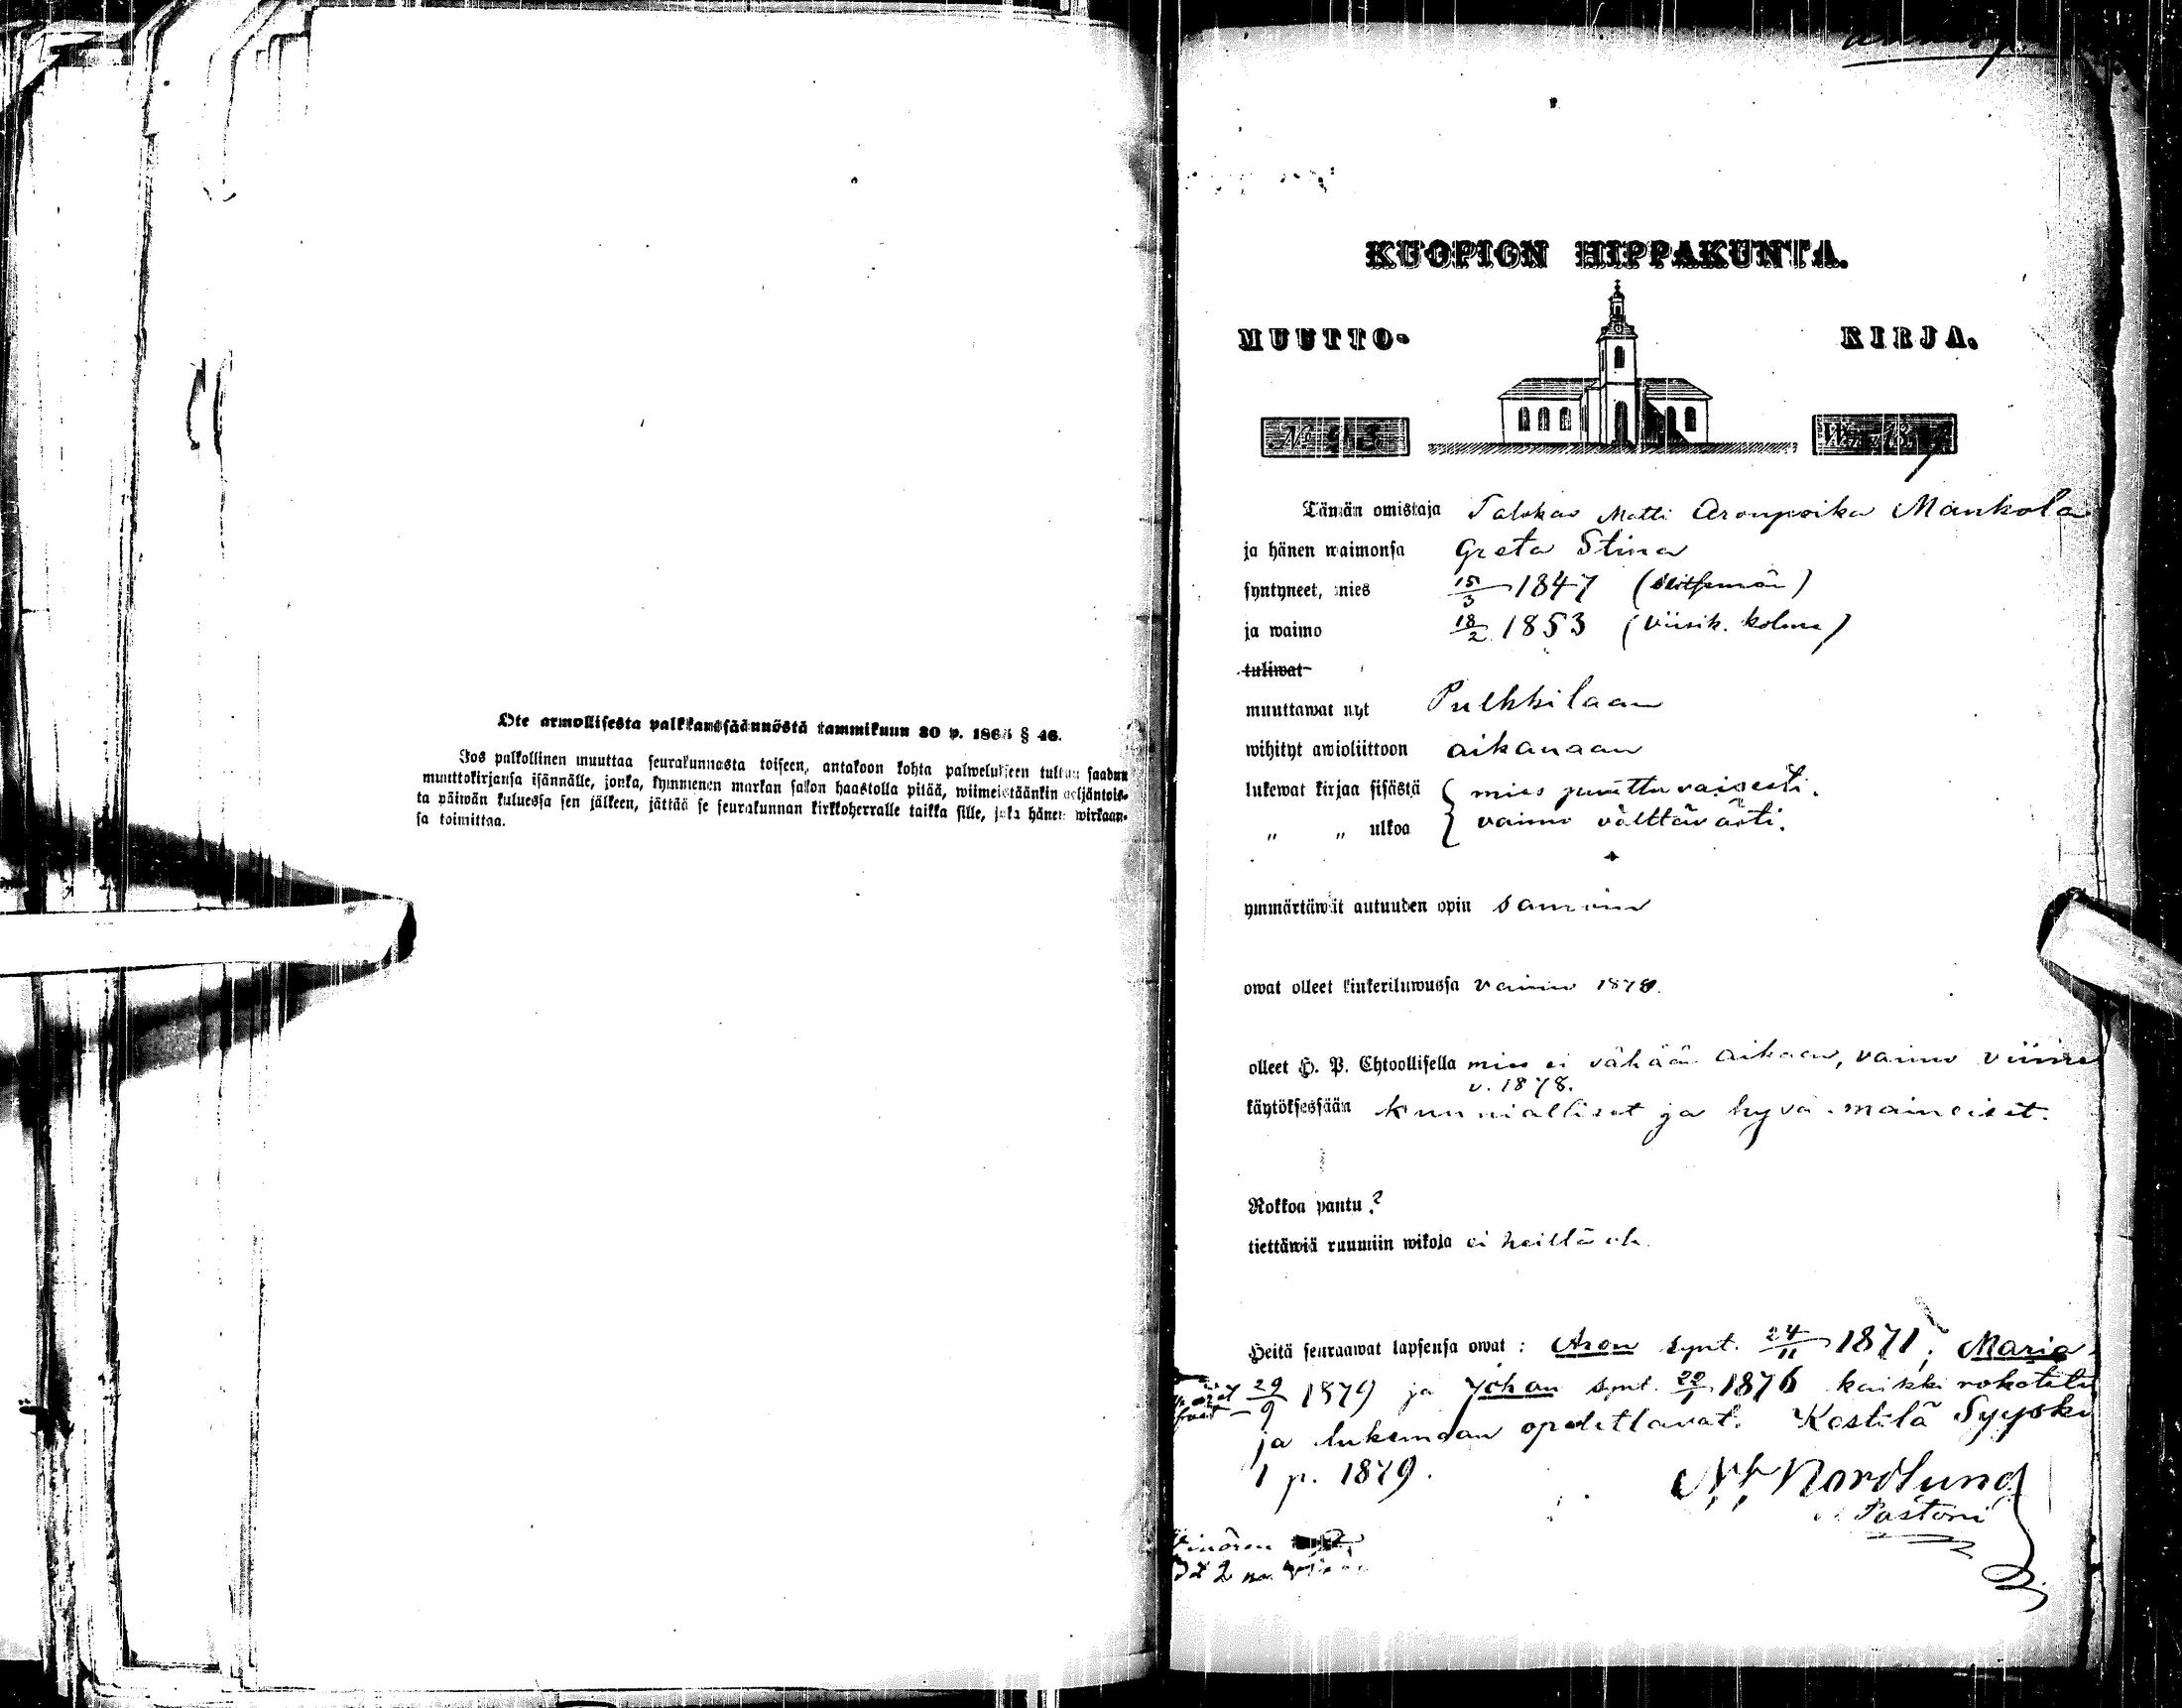 Ote armollisesta palkkaussäännöstä tammikuun 30 p. 1865 § 46.
Jos palkollinen muuttaa seurakunnasta toiseen, antakoon kohta palwelukseen tultuu saadun
muuttokirjansa isännälle, jonka, kymmenen markan sakon haastolla pitää, wiimeistäänkin neljäntois-
ta päiwän kuluessa sen jälkeen, jättää se seurakunnan kirkkoherralle taikka sille, joka hänen wirkaan-
sa toimittaa.
KUOPION HIPPAKUNTA.
MUUTTO- KIRJA.
No 93
Tämän omistaja Talokas Matti Aronpoika Mankola
ja hänen waimonsa Greta Stina
syntyneet, mies 15/3 1847 (seitsemän)
ja waimo 18/2 1853 (viisik. kolme)
tuliwat
muuttawat nyt Pulkkilaan
wihityt awioliittoon aikanaan
lukewat kirjaa sisästä mies puuttuvaisesti.
„ „ ulkoa vaimo välttävästi.
ymmärtäwät autuuden opin samoin
owat olleet kinkeriluwussa vaimo 1878.
olleet H. P. Ehtoollisella mies ei vähään aikaan, vaimo viime
v. 1878.
käytöksessään kunnialliset ja hyvä-maineiset.
Rokkoa pantu ?
tiettäwiä ruumiin wikoja ei heillä ole.
Heitä seuraawat lapsensa owat : Aron synt. 24/11 1871, Maria
29/9 1879 ja Johan synt. 22/1 1876 kaikki rokotetu
ja lukemaan opetettavat. Kestilä Syysku
1 p. 1879.
Nordlund
Pastori